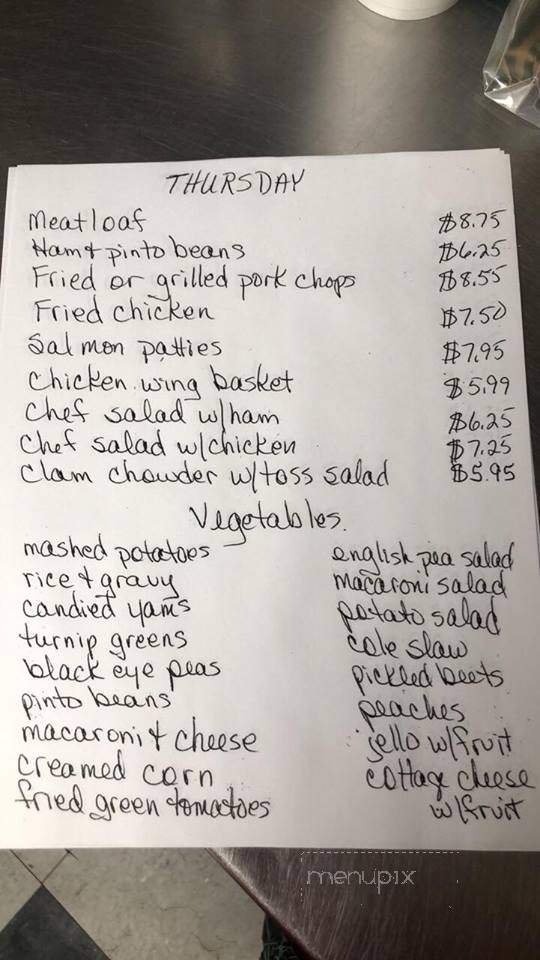 THURSDAY
Meatloaf $8.75
Ham & pinto beans $6.25
Fried or grilled pork chops $8.55
Fried chicken $7.50
Salmon patties $7.95
Chicken wing basket $5.99
Chef salad w/ham $6.25
Chef salad w/chicken $7.25
Clam chowder w/toss salad $5.95
Vegetables
mashed potatoes english pea salad
rice & gravy macaroni salad
candied yams potato salad
turnip greens cole slaw
black eye peas pickled beets
pinto beans peaches
macaroni & cheese jello w/fruit
creamed corn cottage cheese
fried green tomatoes w/fruit
menupix